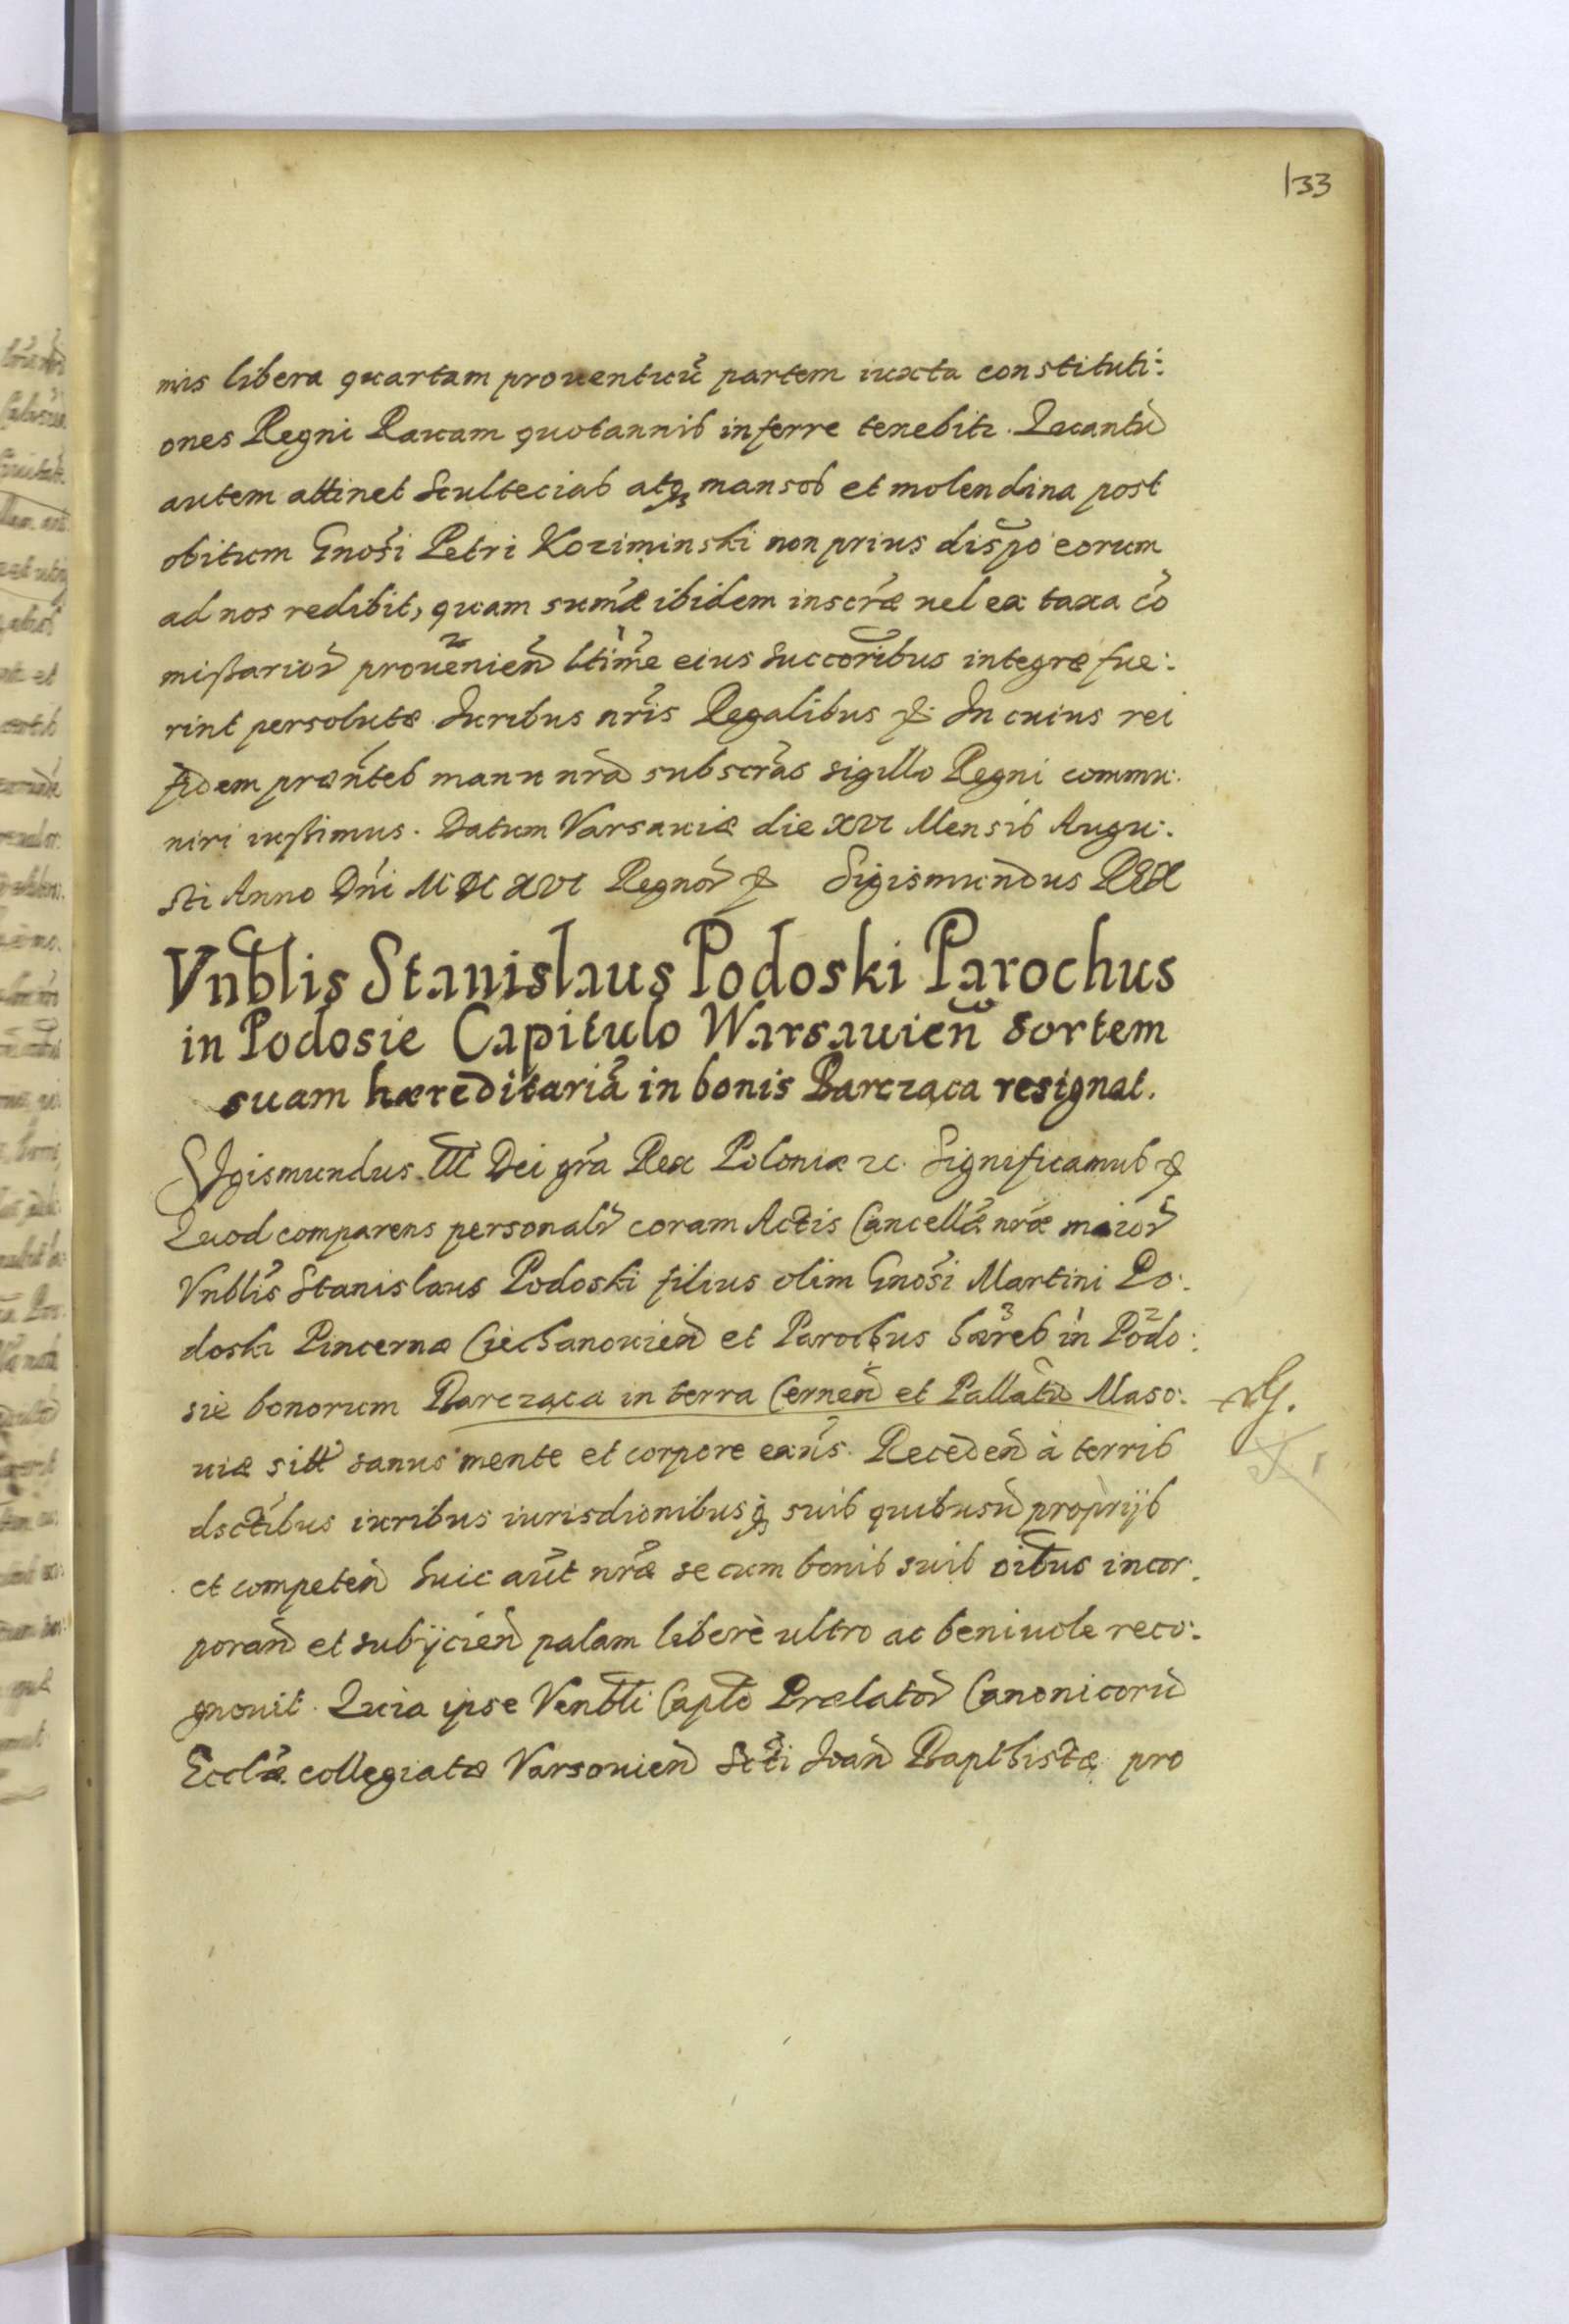 133
mis libera quartam prouentuũ partem iuxta constituti:
ones Regni Rauam quotannis inferre tenebitr. Quantũ
autem attinet Scultecias atq₃ mansos et molendina post
obitum Gnosi Petri Koziminski non prius dispo eorum
ad nos redibit, quam sumæ ibidem inscræ uel ex taxa cõ
mißarior prouenien ltime eius succoribus integræ fue:
rint persolutæ. Iuribus nris Regalibus &. In cuius rei
fidem præntes manu nra subscras sigillo Regni commu:
niri iußimus. Datum Varsauiæ die XVI Mensis Augu:
sti Anno Dni M DC XVI Regnor & Sigismundus REX
Vnblis Stanislaus Podoski Parochus
in Podosie Capitulo Warsauien sortem
suam hæreditariã in bonis Barcząca resignat.
SIgismundus III Dei gra Rex Poloniæ &c. Significamus &
Quod comparens personalr coram Actis Cancellæ nræ maior
Vnblis Stanislaus Podoski filius olim Gnosi Martini Po:
doski Pincernæ Ciechanouien et Parochus hæres in Podo:
sie bonorum Barcząca in terra Cernen et Pallatũ Maso:
uiæ sitt sanus mente et corpore exãns. Receden à terris
dsctibus iuribus iurisdionibusq₃ suis quibusũ proprijs
et competen huic aũt nræ se cum bonis suis oibus incor:
poran et subijcien palam liberè ultro ac beniuole reco:
gnouit. Quia ipse Venbli Caplo Prælator Canonicorũ
Ecclæ collegiatæ Varsouien Scti Ioan Bapthistæ pro